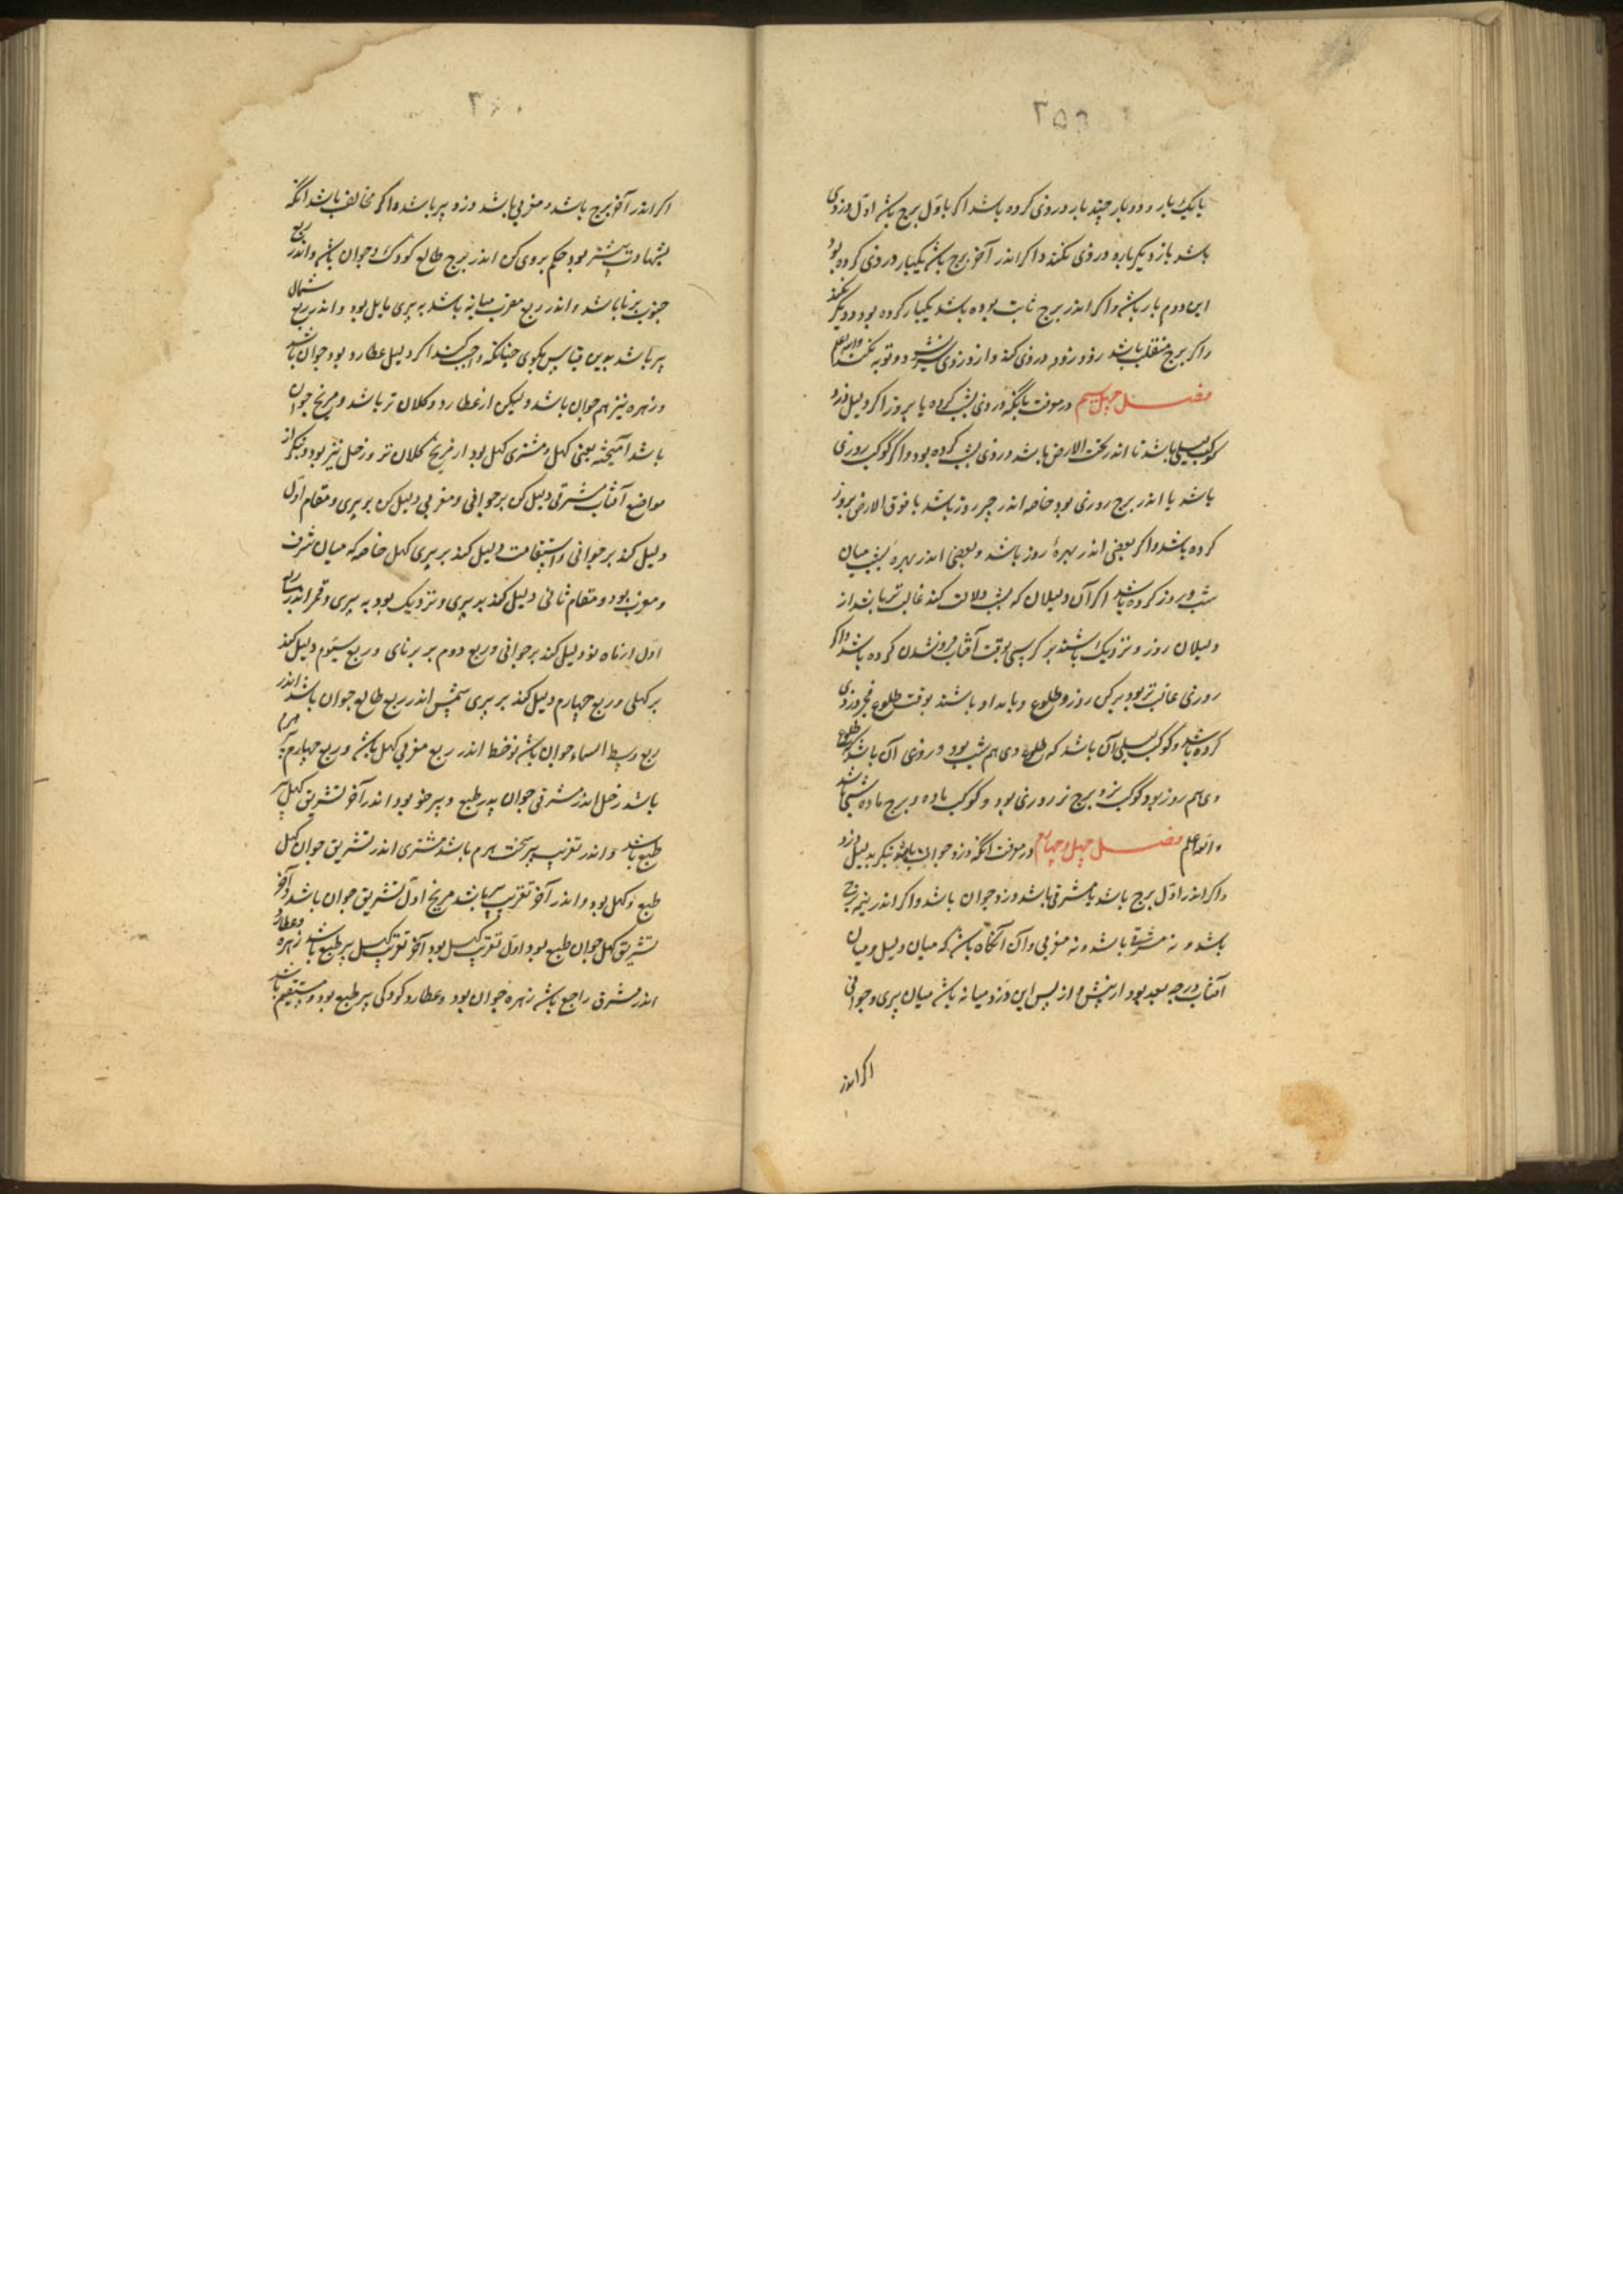 ۲۵۹
یا یکبار و دو بار چند بار دزدی کرده باشد اگر باول برج باشد اول دزدی
باشد باز دیگر باره دزدی نکند و اگر اندر آخر برج باشد یکبار دزدی کرده بود
این دوم بار باشد و اگر اندر برج ثابت بوده باشد یکبار کرده بود و دیگر نکند
و اگر برج منقلب باشد زود زود دزدی کند و از دزدی سیر نشود و توبه نکند والله اعلم
فصل چهل سیم در معرفت بانکه دزدی بشب کرده یا بروز اگر دلیل دزد
کوکب لیلی باشد تا اندر تحت الارض باشد دزدی بشب کرده بود و اگر کوکب روزی
باشد یا اندر برج روزی بود خاصه اندر چیز روز باشد یا فوق الارض بروز
کرده باشد و اگر بعضی اندر بهرهٔ روز باشد و بعضی اندر بهرهٔ شب میان
شب و روز کرده باشد اگر آن دلیلان که بشب دلالت کند غالب تر باشد از
دلیلان روز و نزدیک باشند بر کرسی بوقت آفتاب فروشدن کرده باشد و اگر
روزی غالب تر بود برکی روز و طلوع و بامداد باشند بوقت طلوع فجر دزدی
کرده باشد و کوکب لیلی آن باشد که طلوع وی هم شب بود و روزی آن باشد که طلوع
وی هم روز بود و کوکب نر و برج نر روزی بود و کوکب ماده و برج ماده شبی باشد
والله اعلم فصل چهل و چهارم در معرفت انکه دزد جوان یا بنگر بدلیل دزد
و اگر اندر اول برج باشد یا مشرقی باشد دزد جوان باشد و اگر اندر نیمه برج
باشد و نه مشرقی باشد و نه مغربی و آن آنگاه باشد که میان دلیل و میان
آفتاب درجه بعد بود از پیش و از پس این دزد میانه باشد میان پیری و جوانی
اگر اندر
۲۶۰
اگر اندر آخر برج باشد و مغربی باشد دزد پیر باشد و اگر مخالف باشد انکه
بشهادت بیشتر بود حکم بروی کن اندر برج طالع کودک و جوان باشد و اندر ربع
جنوب برنا باشد و اندر ربع مغرب میانه باشد به پیری مایل بود و اندر ربع شمال
پیر باشد بدین قیاس بگوی چنانکه واجب کند اگر دلیل عطارد بود جوان باشد
و زهره نیز هم جوان باشد ولیکن از عطارد و کلان تر باشد و مریخ جوان
باشد آمیخته یعنی کهل و مشتری کهل بود از مریخ کلان تر و زحل نیز بود و نیکر از
مواضع آفتاب مشرقی دلیل کن بر جوانی و مغربی دلیل کن بر پیری و مقام اول
دلیل کند بر جوانی و استقامت دلیل کند بر پیری کهل خاصه که میان شرف
و مغرب بود و مقام ثانی دلیل کند بر پیری و نزدیک بود به پیری و قمر اندر ربع
اول از ماه نو دلیل کند بر جوانی و ربع دوم بر برنای و ربع سیوم دلیل کند
بر کهلی و ربع چهارم دلیل کند بر پیری شمس اندر ربع طالع جوان باشد اندر
ربع وسط السماء جوان باشد نوخط اندر ربع مغربی کهل باشد و ربع چهارم
باشد زحل اندر مشرقی جوان پیر طبع و پیر خو بود اندر آخر تشریق کهل پیر
طبع باشد و اندر تغریب پیر سخت هرم باشد مشتری اندر تشریق جوان کهل
طبع و کهل بود و اندر آخر تغریب پیر باشد مریخ اول تشریق جوان باشد و آخر
تشریق کهل جوان طبع بود اول تغریب کهل بود آخر تغریب کهل پیر طبع باشد زهره و عطارد
اندر مشرق راجع باشد زهره جوان بود و عطارد کودکی پیر طبع بود و مستقیم باشد